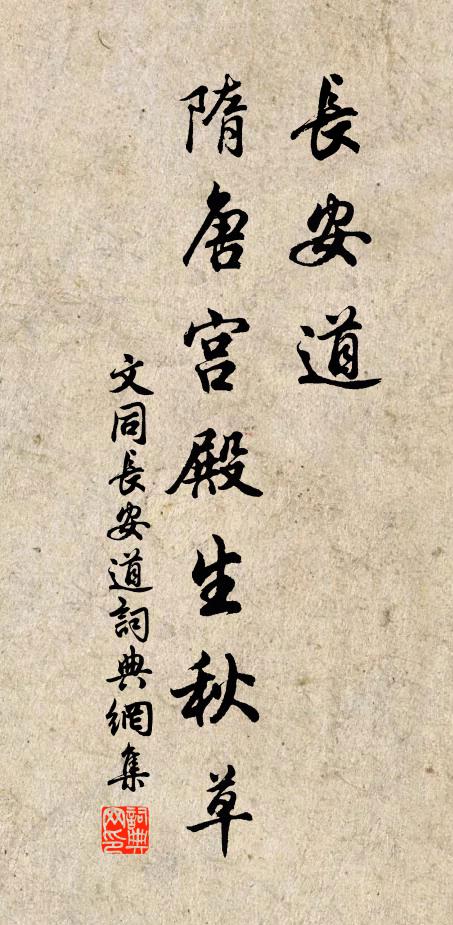 長安道
隋唐宫殿生秋草
文同長安道詞典網集
詞典网印